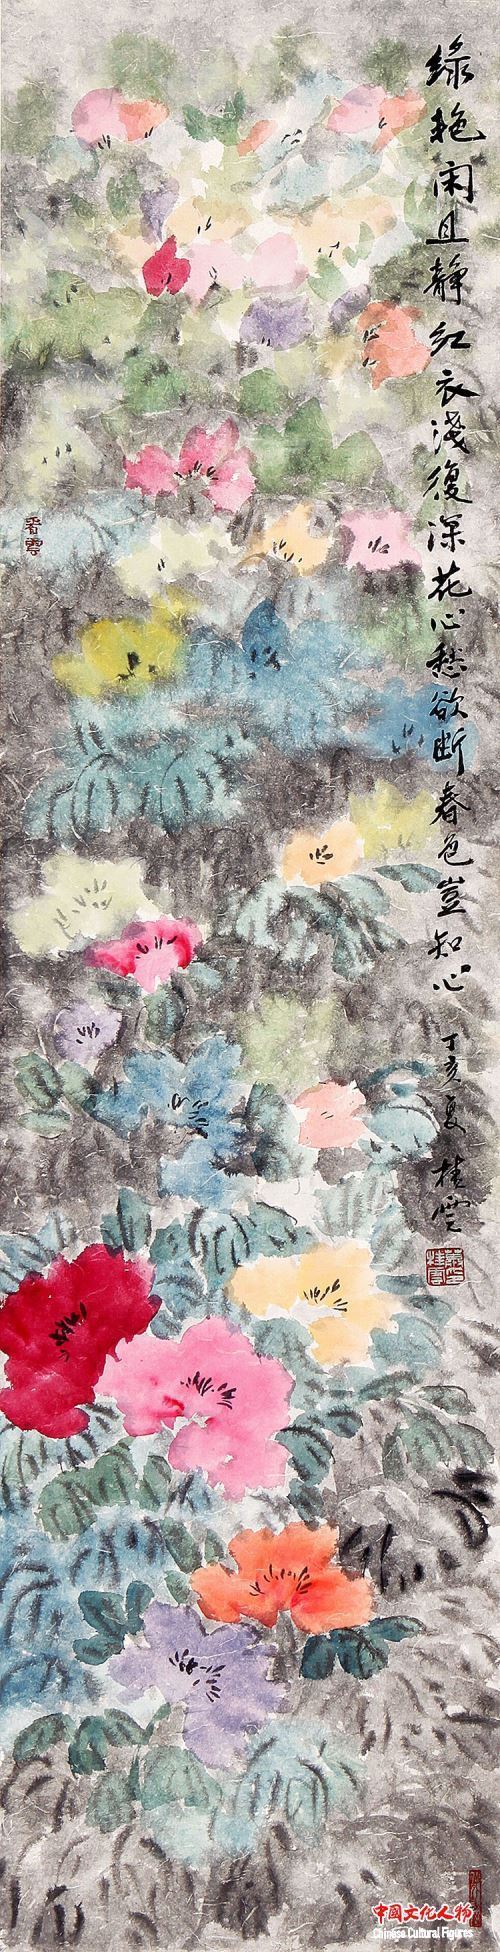 绿艳闲且静红衣淺復深花心愁欲断春色豈知心
丁亥夏 桂雲
中國文化人物
Chinese Cultural Figures